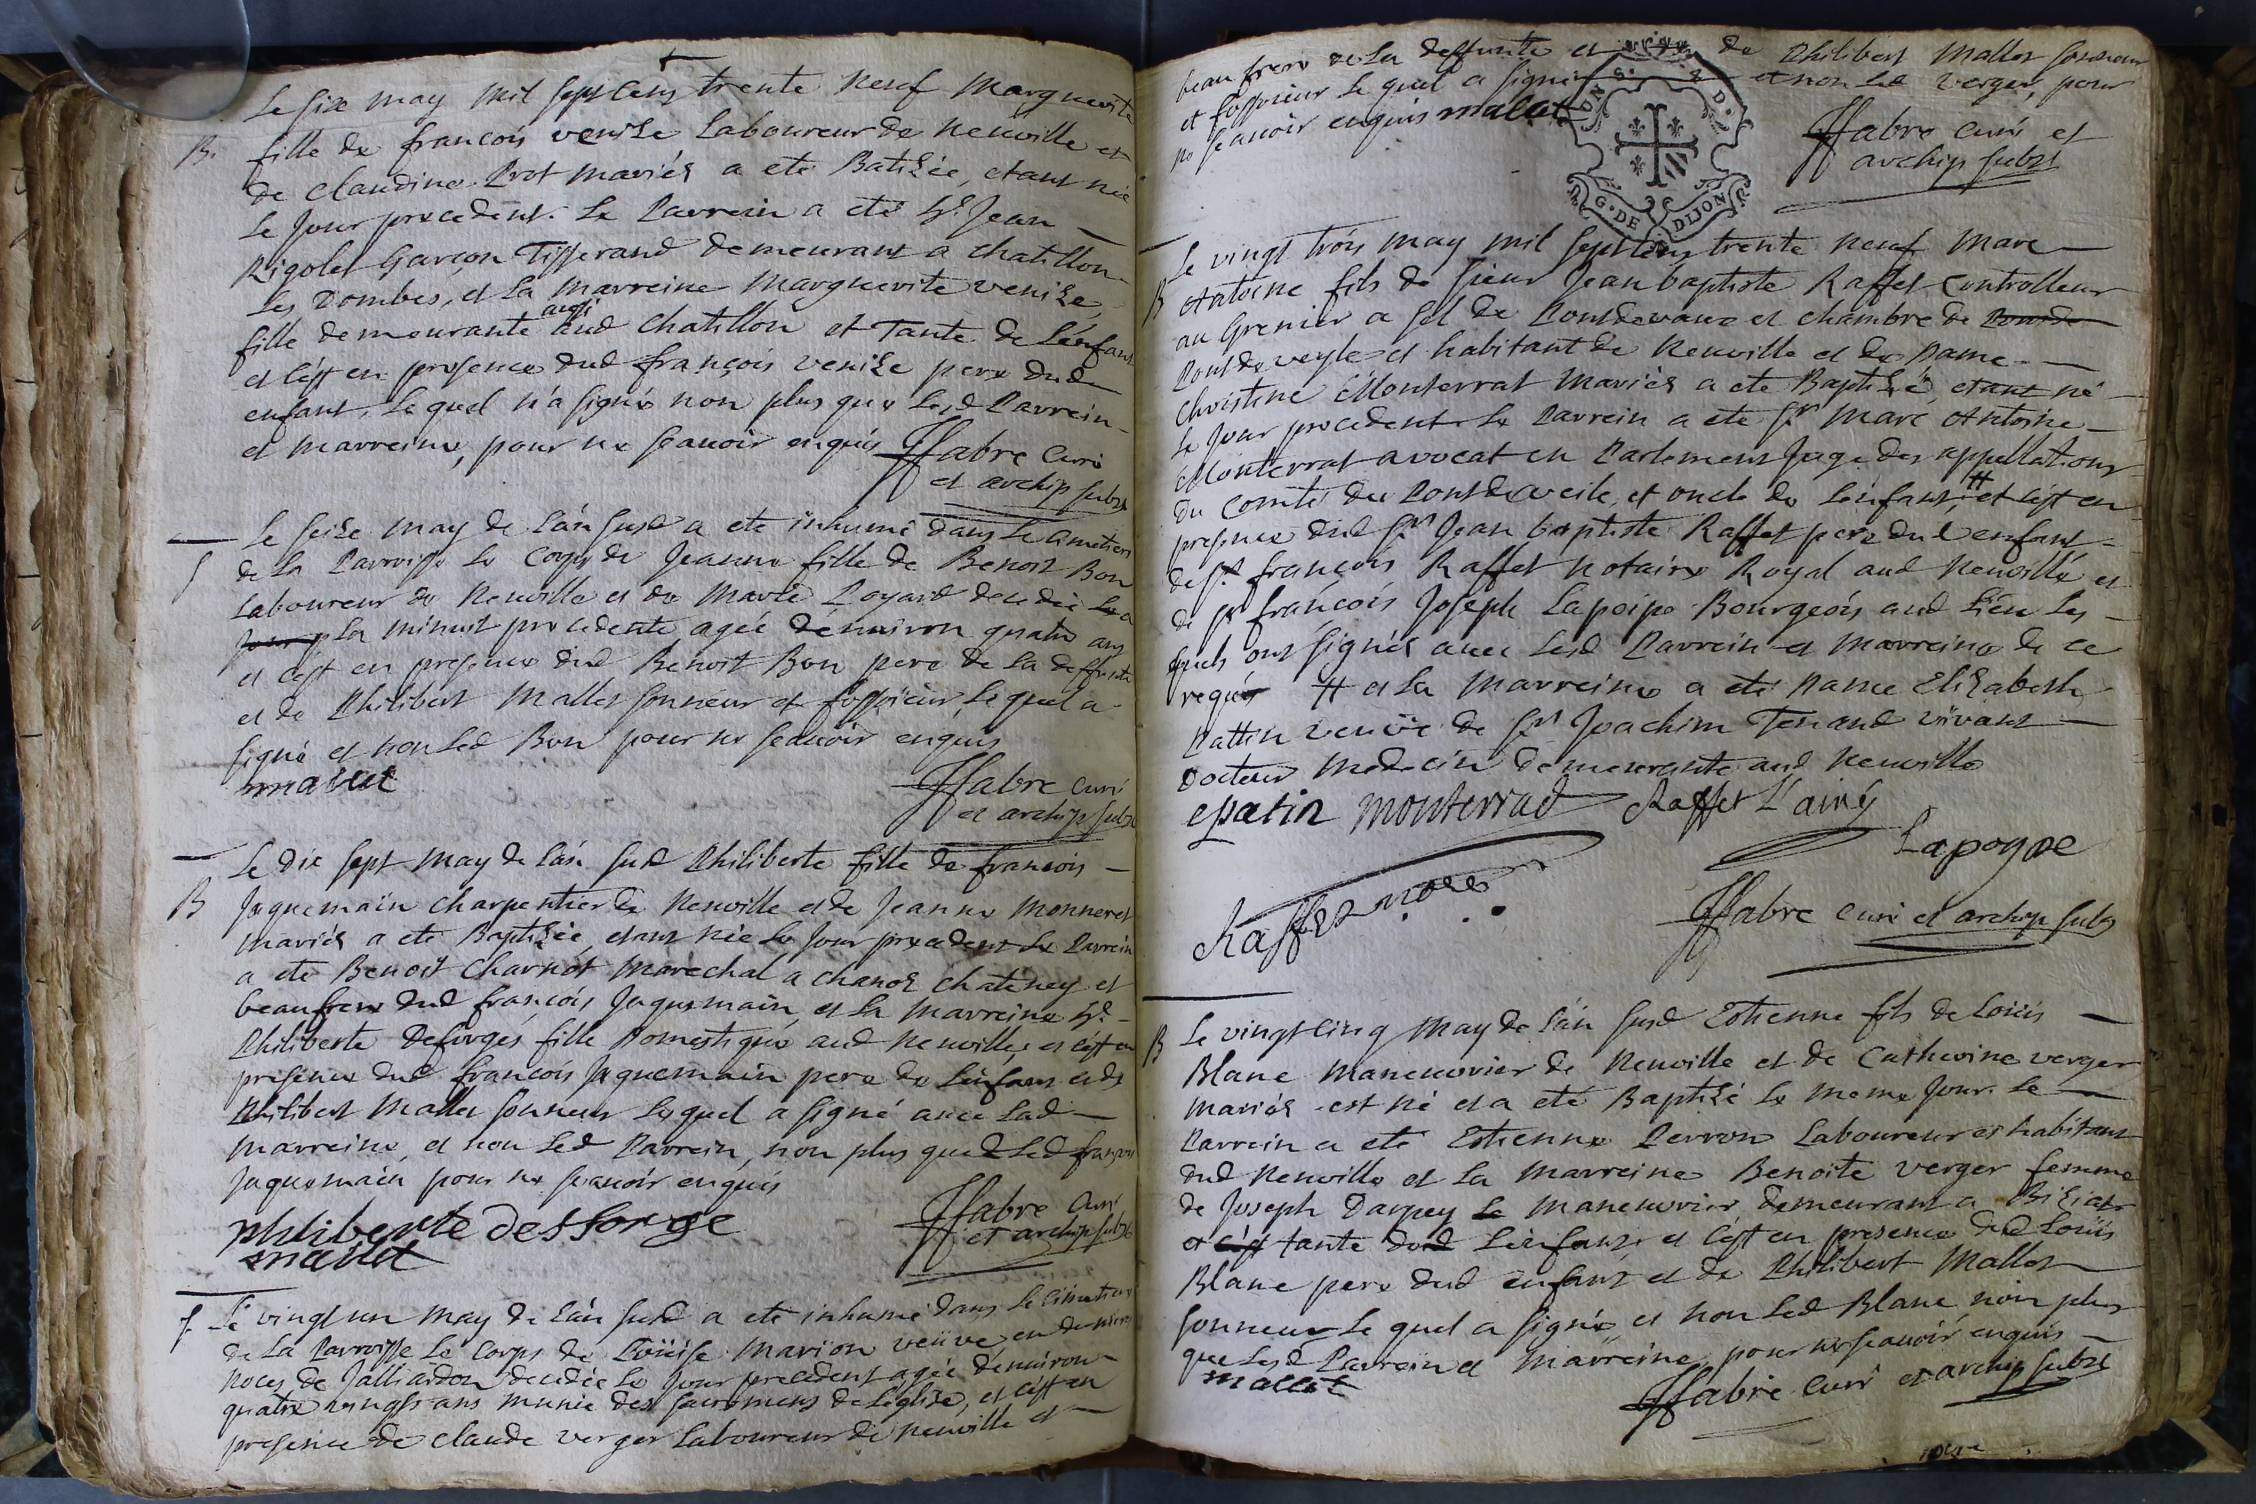 B. Le six may mil sept cens trente neuf Marguerite
fille de françois venize Laboureur de Neuville et
de Claudine Prot mariés a eté Batizée, etant née
le jour precedent. Le Parrein a eté hte Jean
Rigolet Garçon Tisserand demeurant a chatillon
les Dombes, et la marreine Marguerite venize,
fille demeurante aussi aud chatillon et Tante de L'enfant
et c'est en presence dud françois venize pere dud
enfant, lequel n'a signé non plus que lesd Parrein
et marreine, pour ne sçavoir enquis
ffabre Curé
et archip subst
S Le seize may de l'an susd a eté inhumé dans le Cimetiere
de la Parroisse le Corps de Jeanne fille de Benoit Bon
Laboureur de Neuville et de Marie Poyard decedée
la minuit precedente agée d'environ quatre ans
et c'est en presence dud Benoit Bon pere de la deffunte
et de Philibert Mallet sonneur et fossoïeur, lequel a
signé et non led Bon pour ne sçavoir enquis
mallet
ffabre curé
et archip subst
B Le dix sept may de l'an susd Philiberte fille de françois
Jaquemain charpentier de Neuville et de Jeanne Monneret
mariés a eté Baptizée, etant née le jour precedent le Parrein
a eté Benoit Charnot Marechal a chanoz chatenay et
beaufrere dud françois Jaquemain, et la Marreine hte
Philiberte Deforges fille Domestique aud Neuville, et c'est en
presence dud françois Jaquemain pere de L'enfant et de
Philibert Mallet sonneur lequel a signé avec lad
marreine, et non led Parrein, non plus que led françois
Jaquemain pour ne sçavoir enquis
philiberte desforge
mallet
ffabre Curé
et archip subst
S. Le vingt un may de l'an susd a eté inhumé dans le cimetiere
de la Parroisse le corps de Loüise Marion veüve en dernieres
noces de Jalliardon decedée le jour precedent agée d'environ
quatre vingts ans munie des sacremens de L'église, et c'est en
presence de claude verger Laboureur de Neuville et
beau frere de la deffunte et de Philibert Mallet sonneur
et fossoïeur lequel a signé et non led verger, pour
ne sçavoir enquis mallet
ffabre curé et
archip subst
G. DE DIJON
Le vingt trois may mil sept cens trente neuf Marc
B Antoine fils de sieur Jean baptiste Raffet Controlleur
au Grenier a sel de Pontdevaux et chambre de
Pontdeveyle et habitant de Neuville et de Dame
Christine Monterrat mariés a eté Baptizé, etant né
le jour precedent le Parrein a eté sr Marc Antoine
Monterrat avocat en Parlement Juge des appellations
du Comté du Pontdeveile, et oncle de L'enfant, # et c'est en
presence dud sr Jean baptiste Raffet pere dud enfant
de sr françois Raffet Notaire Royal aud Neuville et
de sr françois Joseph Lapoipe Bourgeois aud Lieu les
quels ont signés avec lesd Parrein et marreine de ce
requis # et la Marreine a eté Dame Elizabeth
Pattin veuve de sr Joachim Tenand vivant
Docteur Medecin demeurante aud Neuville
epatin monterrad Raffet L'ainé
Lapoype
Raffet
ffabre curé et archip subst
B Le vingt cinq May de l'an susd Etienne fils de Loüis
Blanc Maneuvrier de Neuville et de Catherine verger
mariés est né et a eté Baptizé le meme jour. Le
Parrein a eté Etienne Perron Laboureur et habitant
dud Neuville et la Marreine Benoite verger femme
de Joseph Darpey maneuvrier demeurant a Biziat
et tante dud L'enfant, et c'est en presence dud Loüis
Blanc pere dud enfant et de Philibert Mallet
sonneur lequel a signé et non led Blanc, non plus
que lesd Parrein et Marreine, pour ne sçavoir enquis
mallet
ffabre curé et archip subst